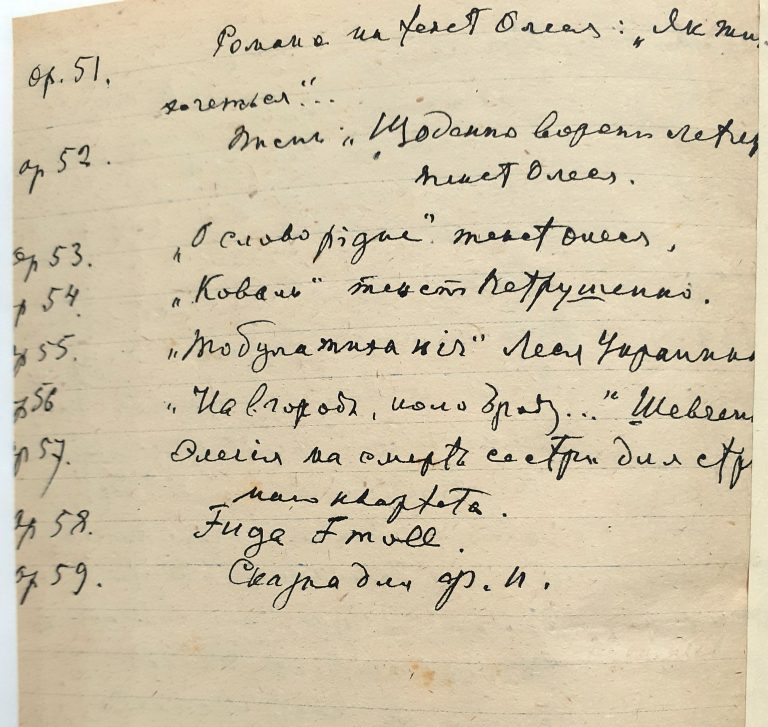 op. 51. Романс на текст Олеся: „Як жи
хочеться"...
op 52. „Щоденно ворони летять
текст Олеся.
op 53. „О слово рідне" текст Олеся,
p 54. „Коваль" текст Петрушенко.
p 55. „То була тиха ніч" Леся Украинка
p 56 „На вгороді, коло броду..." Шевчен
p 57. Элегія на смерть сестри для стр
ного квартета.
op 58. Fuga F moll.
op 59. Сказка для ф. п.